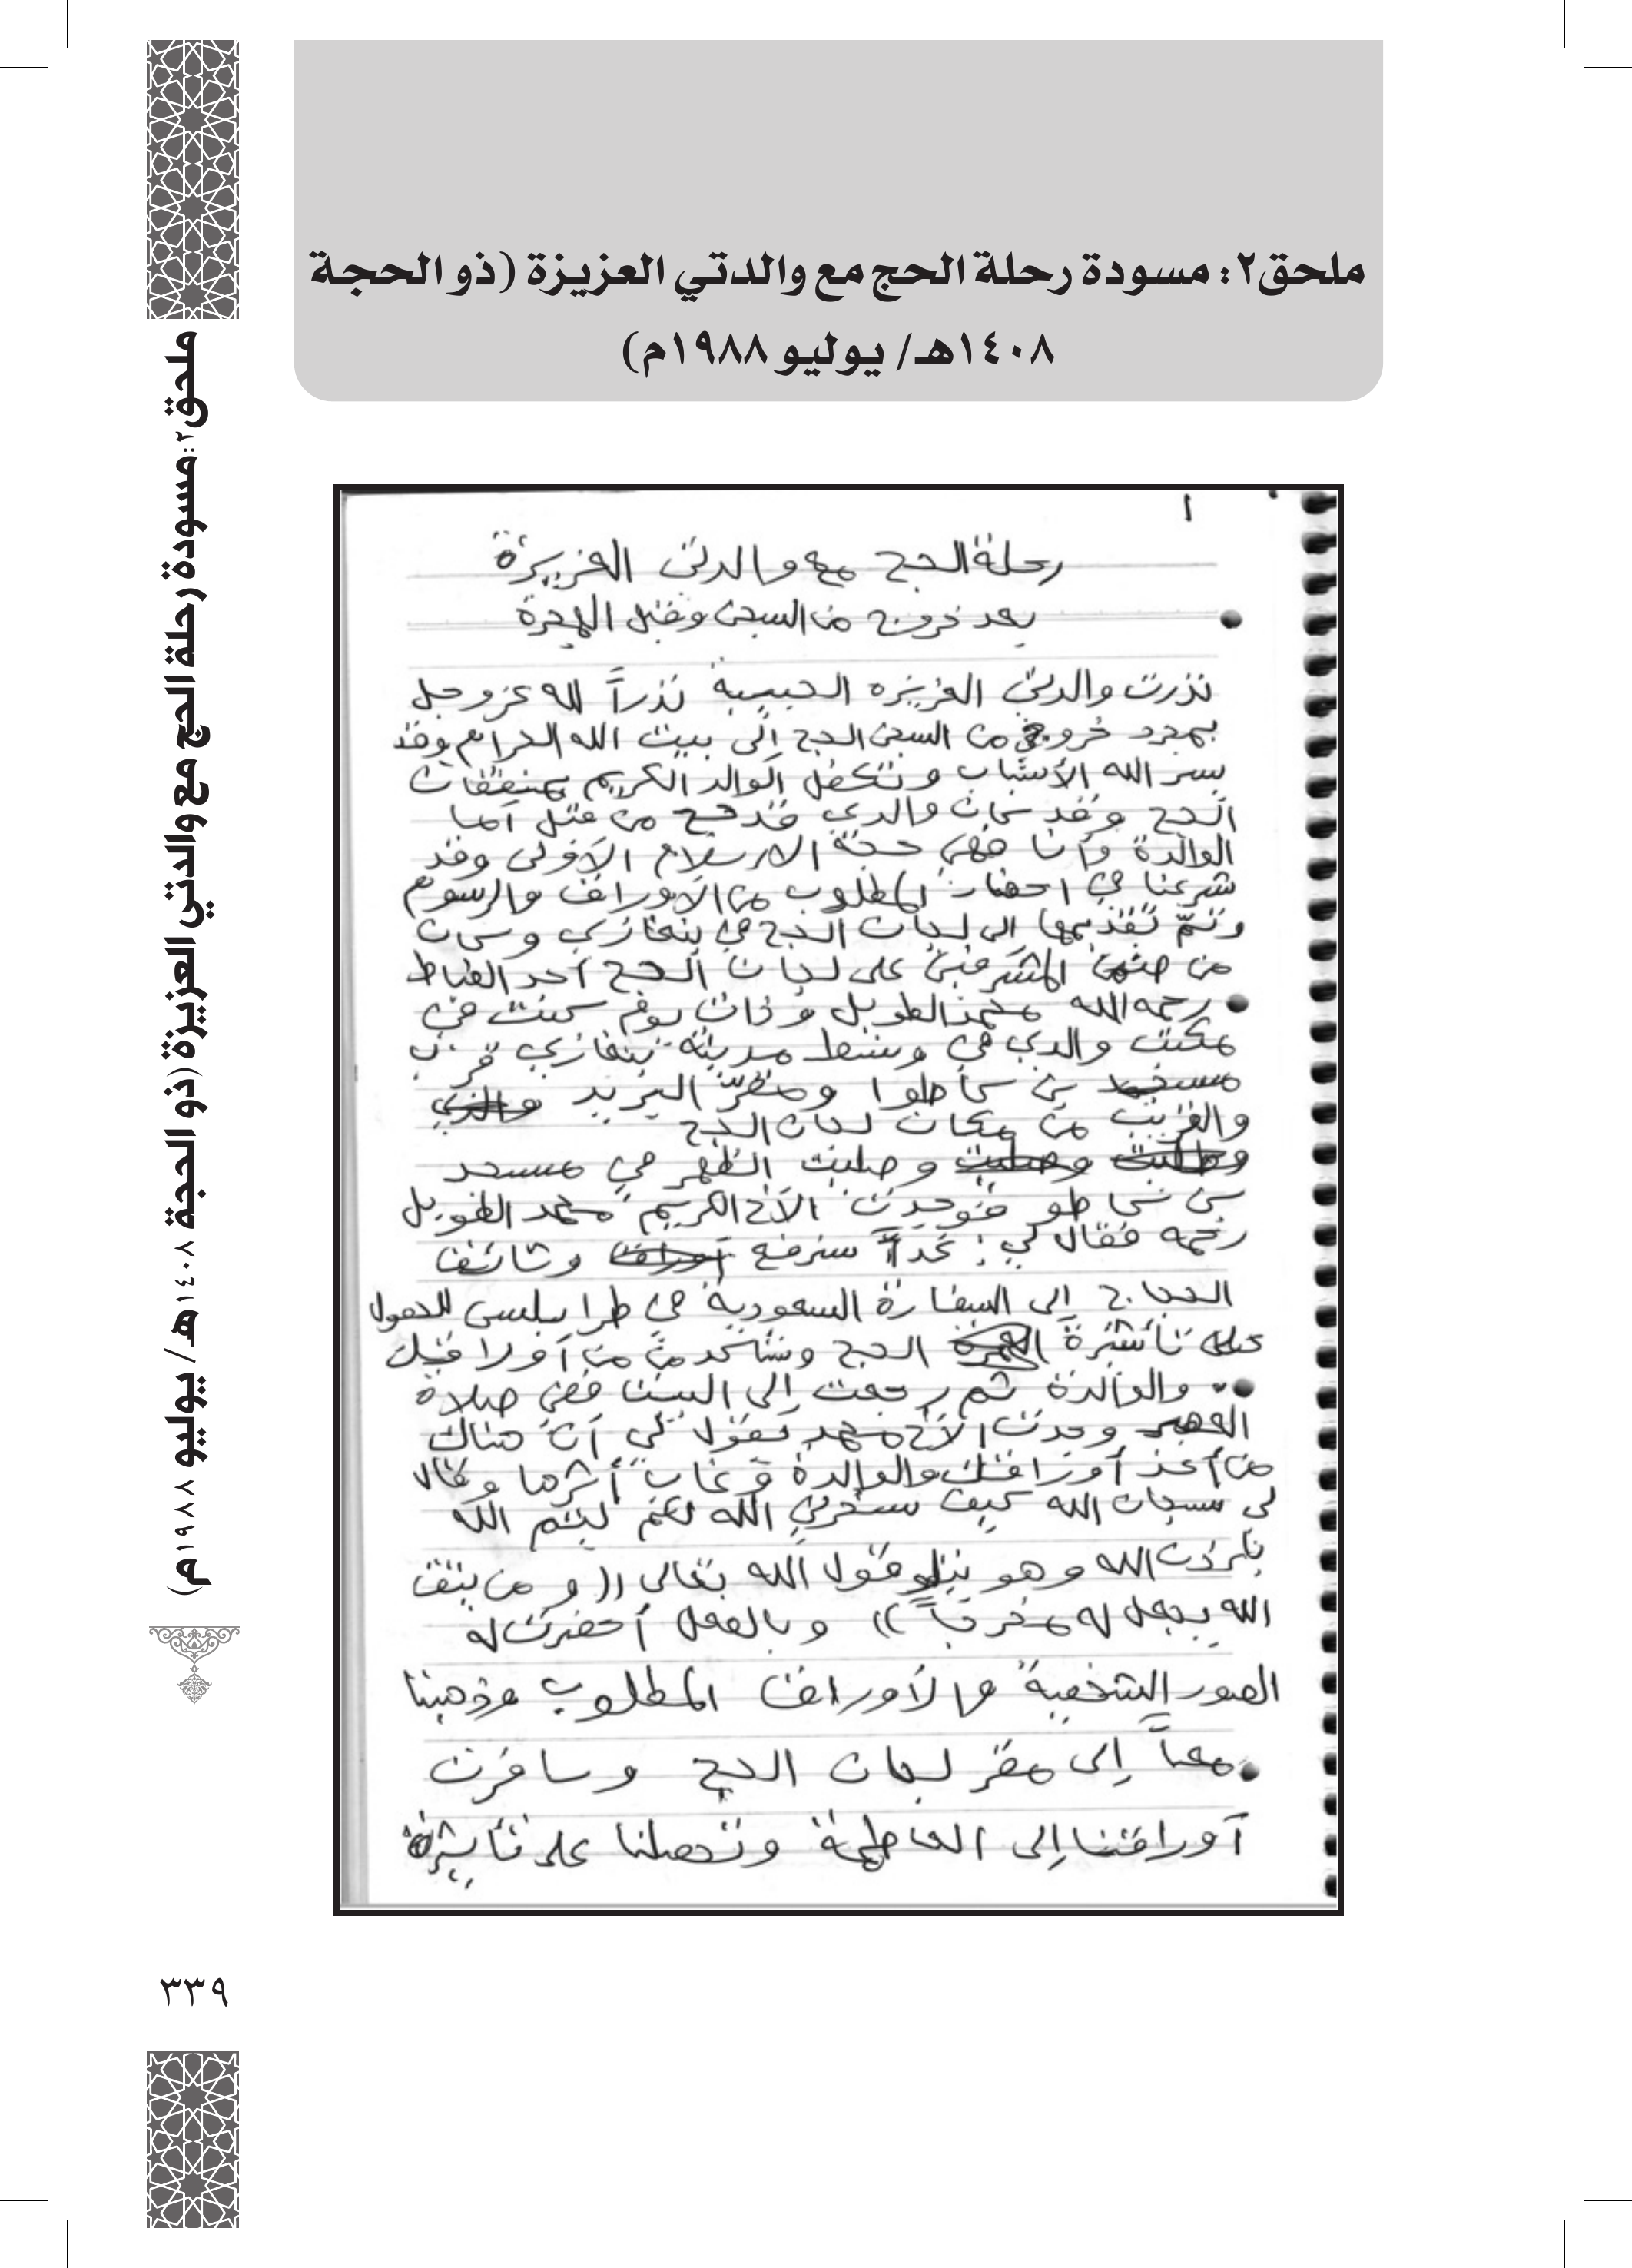 ملحق٢: مسودة رحلة الحج مع والدتي العزيزة (ذو الحجة
١٤٠٨هـ/ يوليو ١٩٨٨م)
١
رحلة الحج مع والدتي العزيزة
بعد خروج من السجن وقبل الهجرة
نذرت والدتي العزيزه الحبيبة نذراً لله عز وجل
بمجرد خروجي من السجن الحج إلى بيت الله الحرام وقد
يسر الله الأسباب وتكفل الوالد الكريم بمنفقات
الحج وقد كان والدي قد حج من قبل أما
الوالدة وأنا فهي حجة الإسلام الأولى وقد
شرعنا في احضار المطلوب من الأوراق والرسوم
وتمّ تقديمها الى لجان الحج في بنغازي وكان
من ضمن المشرفين على لجان الحج أحد الضباط
رحمه الله محمد الطويل وذات يوم كنت في
مكتب والدي في وسط مدينة بنغازي قرب
مسجد بن كاطوا ومقرّ البريد والذي
والقريب من مكان لجان الحج
وطلبت وصليت وصليت الظهر في مسجد
بن كاطو فوجدت الأخ الكريم محمد الطويل
رحمه فقال لي: غداً سنرفع أوراق وثائق
الحجاج إلى السفارة السعودية في طرابلس للحصول
على تأشيرة العمرة الحج وستأخد من أوراقك
والوالدة ثم رجعت إلى البيت ففي صلاة
العصر وجدت الأخ محمد يقول لي أن هناك
من أخذ أوراقك والوالدة وغاب أثرها وقال
لي سبحان الله كيف ستخرج الله لكم ليتم الله
بإذن الله وهو يتلو قول الله تعالى ((ومن يتق
الله يجعل له مخرجاً)) وبالفعل أحضرت له
الصور الشخصية والأوراق المطلوب وذهبنا
معاً إلى مقر لجان الحج وسافرت
أوراقنا إلى العاصمة وتحصلنا على تأشيرة
ملحق٢: مسودة رحلة الحج مع والدتي العزيزة (ذو الحجة ١٤٠٧هـ/ يوليو ١٩٨٧م)
٣٣٩